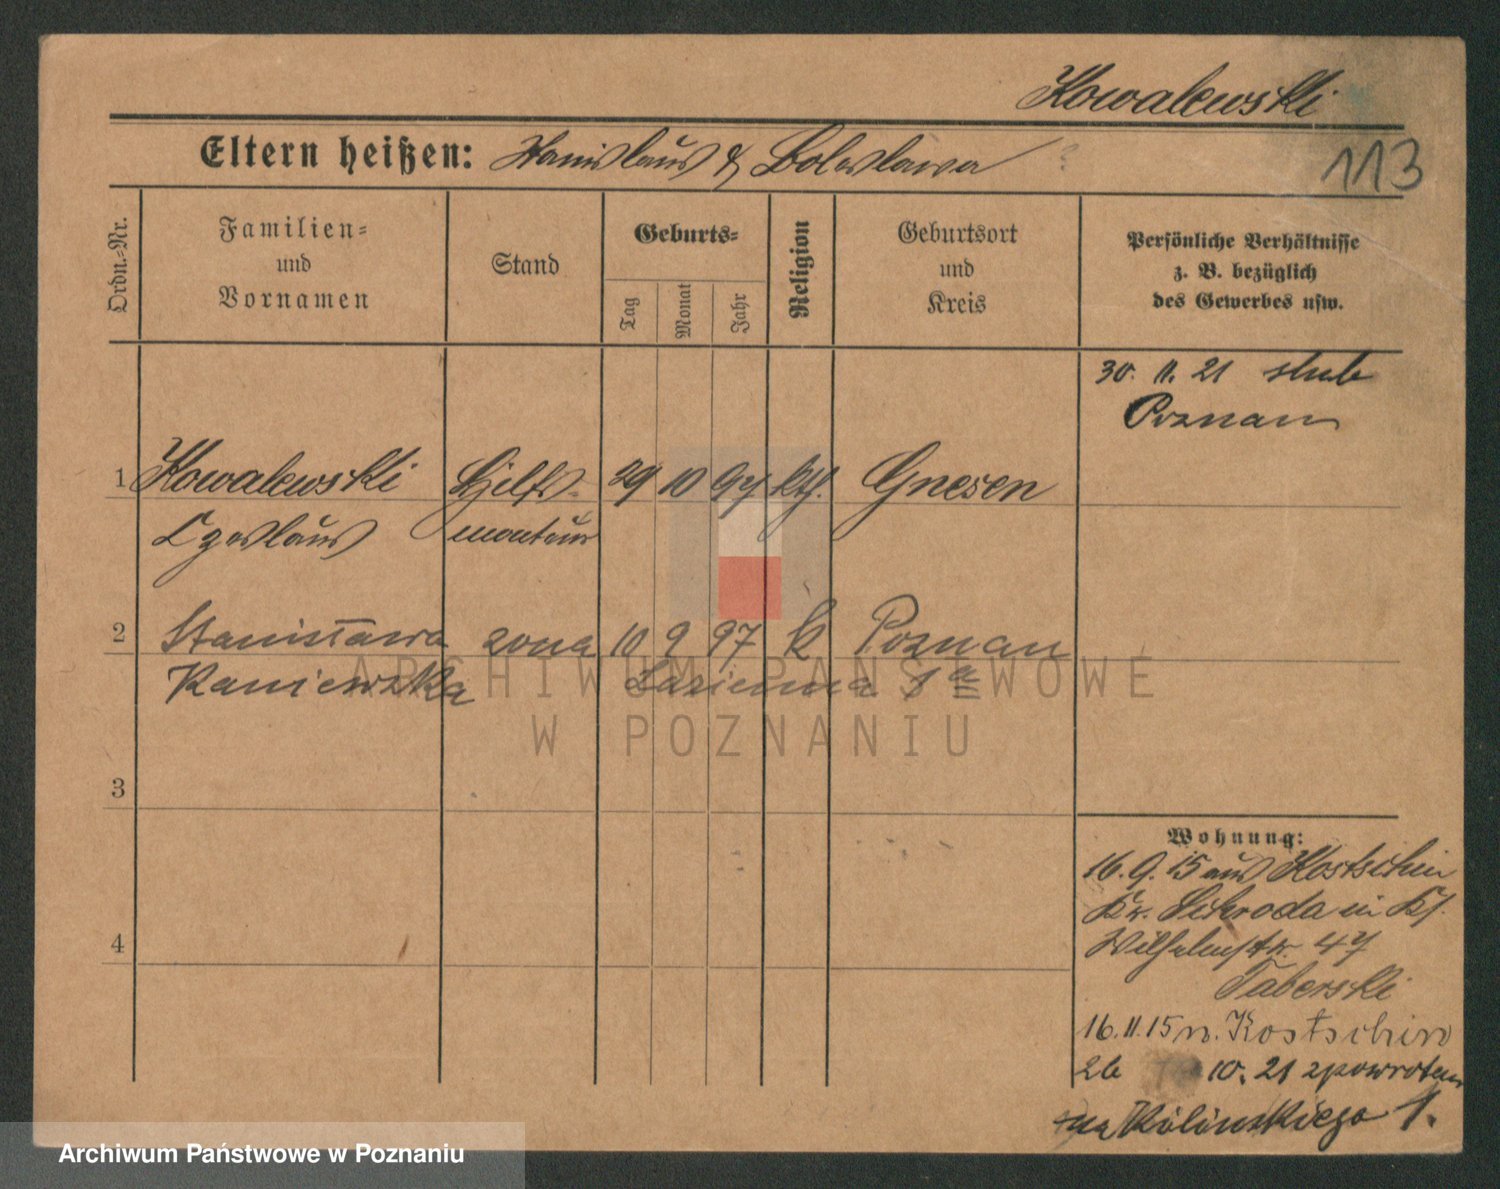 Kowalewski
Eltern heißen: Stanislaus & Boleslawa
113
Ordn.-Nr.
Familien-
und
Vornamen
Stand
Geburts-
Tag
Monat
Jahr
Religion
Geburtsort
und
Kreis
Persönliche Verhältnisse
z. B. bezüglich
des Gewerbes usw.
30. 11. 21 slub
Poznan
1 Kowalewski Hilfs- 29 10 97 kth. Gnesen
Czeslaus monteur
2 Stanisława zona 10 9 97 k Poznan
Kaniewska Łazienna
3
4
Wohnung:
16. 9. 15 aus Kostschin
Kr. Schroda in Kl.
Wilhelmstr. 47
Taberski
16. 11. 15 n. Kostschin
26 10. 21 zpowrotem
na Kilinskiego 1.
ARCHIWUM PAŃSTWOWE
W POZNANIU
Archiwum Państwowe w Poznaniu